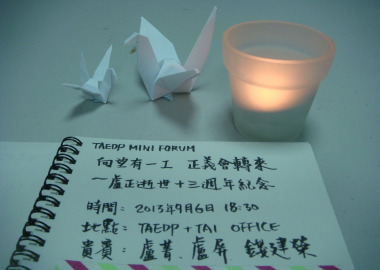 TAEDP MINI FORUM
向望有一工 正義會轉來
～盧正逝世十三週年紀念
時間: 2013年9月6日 18:30
地點: TAEDP + TAI OFFICE
貴賓: 盧菁、盧屏 錢建榮